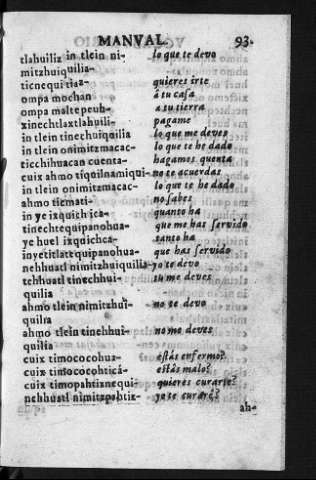 MANVAL. 93.
tlahuiliz in tlein ni- lo que te devo
mitzhuiquilia-
ticnequi tiaz- quieres irte
ompa mochan â tu casa
ompa maltepeuh- a tu tierra
xinechtlaxtlahuili- pagame
in tlein tinechuiquilia lo que me deves
in tlein onimitzmacac- lo que te he dado
ticchihuacan cuenta- hagamos quenta
cuix ahmo tiquilnamiqui- no te acuerdas
in tlein onimitzmacac- lo que te he dado
ahmo ticmati- no sabes
in ye ixquich ica- quanto ha
tinechtequipanohua- que me has servido
ye huel ixquichca- tanto ha
inyetitlatequipanohua- que has servido
nehhuatl nimitzhuiquilia- yo te devo
tehhuatl tinechhui- tu me deves
quilia
ahmo tlein nimitzhui- no te devo
quilia
ahmo tlein tinehhui- no me deves
quilia
cuix timococohua- éstás enfermo?
cuix timococohticá- estás malo?
cuix timopahtiznequi- quieres curarte?
nehhuatl nimitzpahtiz- yo te curaré?
ah-